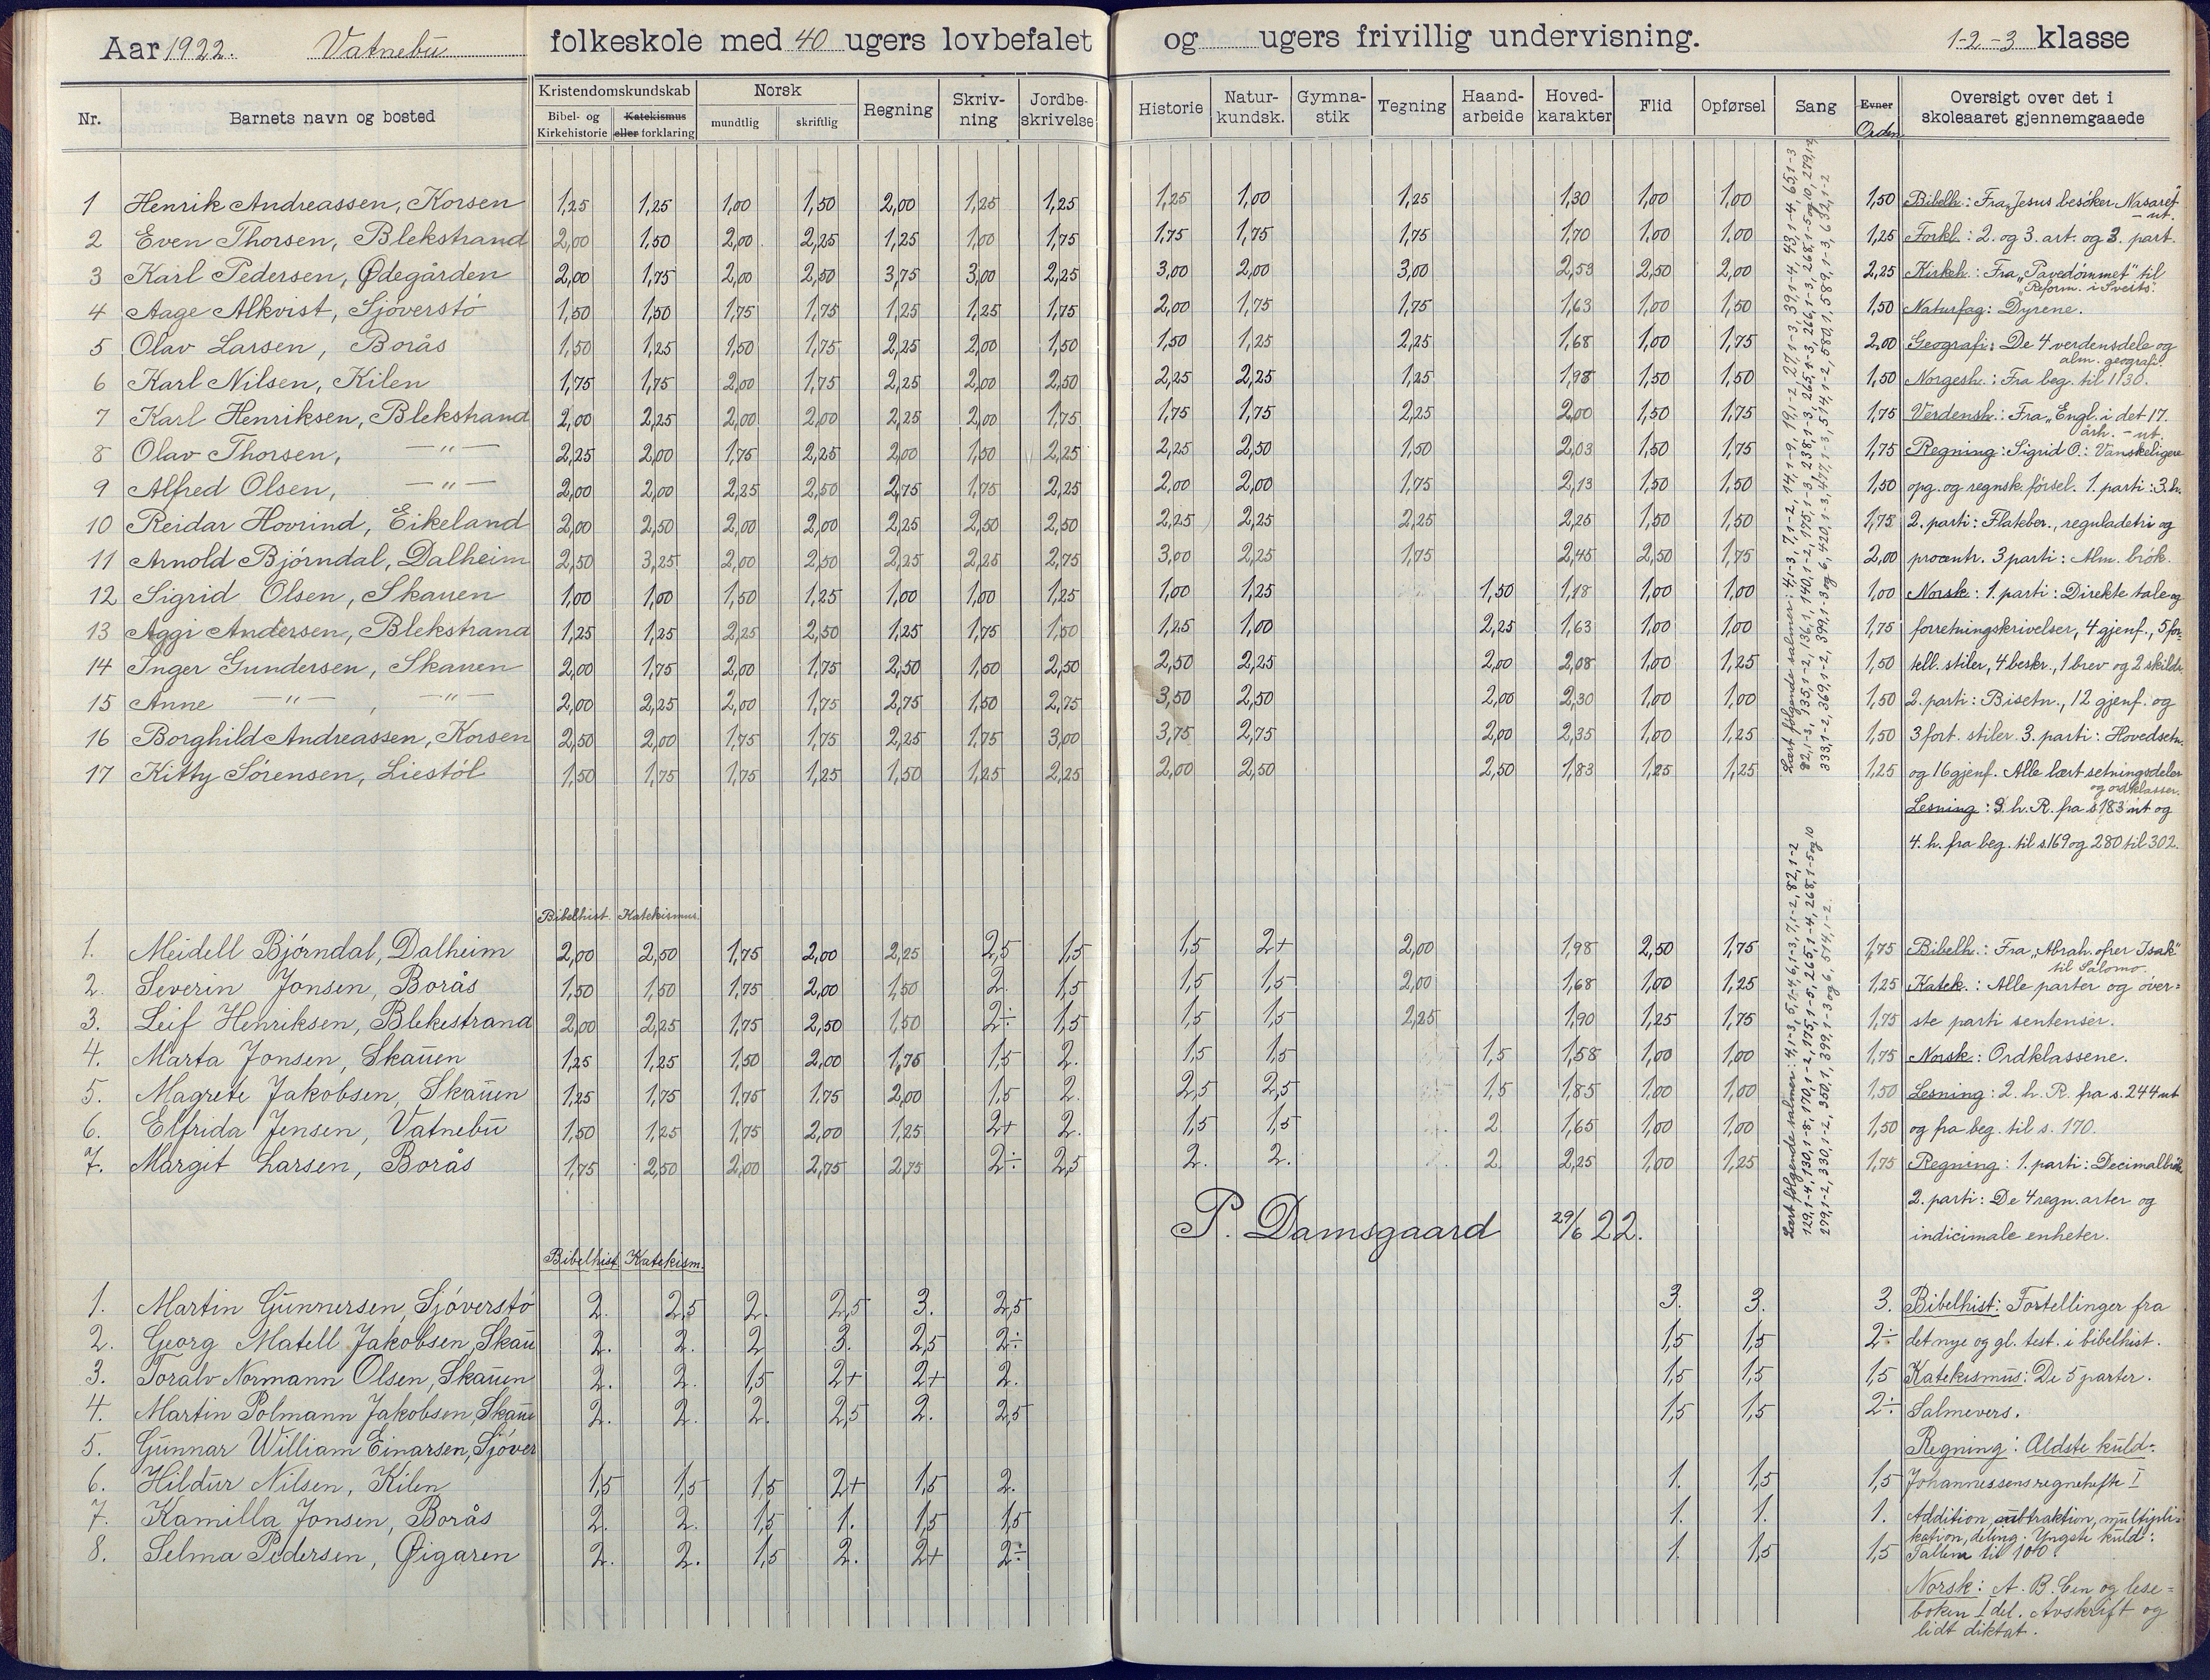 Aar 1922. Vatnebu folkeskole med 40 ugers lovbefalet og ugers frivillig undervisning. 1-2-3 klasse
Nr. Barnets navn og bosted Kristendomskundskab Bibel- og Kirkehistorie Katekismus eller forklaring Norsk mundtlig skriftlig Regning Skriv-ning Jordbe-skrivelse Historie Natur-kundsk. Gymna-stik Tegning Haand-arbeide Hoved-karakter Flid Opførsel Sang Evner Orden Oversigt over det i skoleaaret gjennemgaaede
1 Henrik Andreassen, Korsen 1,25 1,25 1,00 1,50 2,00 1,25 1,25 1,25 1,00 1,25 1,30 1,00 1,00 1,50 Bibelh.: Fra „Jesus besøker Nasaret" - ut.
2 Even Thorsen, Blekstrand 2,00 1,50 2,00 2,25 1,25 1,00 1,75 1,75 1,75 1,75 1,70 1,00 1,00 1,25 Forkl.: 2. og 3. art. og 3. part.
3 Karl Pedersen, Ødegården 2,00 1,75 2,00 2,50 3,75 3,00 2,25 3,00 2,00 3,00 2,53 2,50 2,00 2,25 Kirkeh.: Fra „Pavedømmet" til „Reform. i Sveits".
4 Aage Alkvist, Sjøverstø 1,50 1,50 1,75 1,75 1,25 1,25 1,75 2,00 1,75 1,75 1,63 1,00 1,50 1,50 Naturfag: Dyrene.
5 Olav Larsen, Borås 1,50 1,25 1,50 1,75 2,25 2,00 1,50 1,50 1,25 2,25 1,68 1,00 1,75 2,00 Geografi: De 4 verdensdele og alm. geografi.
6 Karl Nilsen, Kilen 1,75 1,75 2,00 1,75 2,25 2,00 2,50 2,25 2,25 1,25 1,98 1,50 1,50 1,50 Norgesh.: Fra beg. til 1130.
7 Karl Henriksen, Blekstrand 2,00 2,25 2,00 2,00 2,25 2,00 1,75 1,75 1,75 2,25 2,00 1,50 1,75 1,75 Verdensh.: Fra „Engl. i det 17. årh. - ut.
8 Olav Thorsen, —"— 2,25 2,00 1,75 2,25 2,00 1,50 2,25 2,25 2,50 1,50 2,03 1,50 1,75 1,75 Regning: Sigrid O.: Vanskeligere
9 Alfred Olsen, —"— 2,00 2,00 2,25 2,50 2,75 1,75 2,25 2,00 2,00 1,75 2,13 1,50 1,50 1,50 opg. og regnsk.førsel. 1. parti: 3. h.
10 Reidar Hovrind, Eikeland 2,00 2,50 2,00 2,00 2,25 2,50 2,50 2,25 2,25 2,25 2,25 1,50 1,50 1,75 2. parti: Flateber., reguladetri og
11 Arnold Bjørndal, Dalheim 2,50 3,25 2,00 2,50 2,25 2,25 2,75 3,00 2,25 1,75 2,45 2,50 1,75 2,00 procentr. 3 parti: Alm. brøk.
12 Sigrid Olsen, Skauen 1,00 1,00 1,50 1,25 1,00 1,00 1,25 1,00 1,25 1,50 1,18 1,00 1,00 1,00 Norsk: 1. parti: Direkte tale og
13 Aggi Andersen, Blekstrand 1,25 1,25 2,25 2,50 1,25 1,75 1,50 1,25 1,00 2,25 1,63 1,00 1,00 1,75 forretningskrivelser, 4 gjenf., 5 for-
14 Inger Gundersen, Skauen 2,00 1,75 2,00 1,75 2,50 1,50 2,50 2,50 2,25 2,00 2,08 1,00 1,25 1,50 tell. stiler, 4 beskr., 1 brev og 2 skildr.
15 Anne —"— , —"— 2,00 2,25 2,00 1,75 2,75 1,50 2,75 3,50 2,50 2,00 2,30 1,00 1,00 1,50 2. parti: Bisetn., 12 gjenf. og
16 Borghild Andreassen, Korsen 2,50 2,00 1,75 1,75 2,25 1,75 3,00 3,75 2,75 2,00 2,35 1,00 1,25 1,50 3 fort. stiler. 3. parti: Hovedsetn.
17 Kitty Sørensen, Liestøl 1,50 1,75 1,75 1,25 1,50 1,25 2,25 2,00 2,50 2,50 1,83 1,25 1,25 1,25 og 16 gjenf. Alle lært setningsdeler og ordklasser.
Lesning: 3. h. R. fra s. 183 ut og
4. h. fra beg. til s. 169 og 280 til 302.
Lært følgende salmer:
Bibelhist. Katekismus.
1. Meidell Bjørndal, Dalheim 2,00 2,50 1,75 2,00 2,25 2,5 1,5 1,5 2+ 2,00 1,98 2,50 1,75 1,75 Bibelh.: Fra „Abrah. ofrer Isak" til Salomo.
2. Severin Jonsen, Borås 1,50 1,50 1,75 2,00 1,50 2. 1,5 1,5 1,5 2,00 1,68 1,00 1,25 1,25 Katek.: Alle parter og øver-
3. Leif Henriksen, Blekestrand 2,00 2,25 1,75 2,50 1,50 2÷ 1,5 1,5 1,5 2,25 1,90 1,25 1,75 1,75 ste parti sentenser.
4. Marta Jonsen, Skauen 1,25 1,25 1,50 2,00 1,75 1,5 2. 1,5 1,5 1,5 1,58 1,00 1,00 1,75 Norsk: Ordklassene.
5. Magrete Jakobsen, Skauen 1,25 1,75 1,75 1,75 2,00 1,5 2. 2,5 2,5 1,5 1,85 1,00 1,00 1,50 Lesning: 2. h. R. fra s. 244 ut
6. Elfrida Jensen, Vatnebu 1,50 1,25 1,75 2,00 1,25 2+ 2. 1,5 1,5 2 1,65 1,00 1,00 1,50 og fra beg. til s. 170.
7. Margit Larsen, Borås 1,75 2,50 2,00 2,75 2,75 2÷ 2,5 2. 2. 2. 2,25 1,00 1,25 1,75 Regning: 1. parti: Decimalbrøk
2. parti: De 4 regn.arter og
indicimale enheter.
Lært følgende salmer:
P. Damsgaard 29/6 22.
Bibelhist. Katekism.
1. Martin Gunnersen, Sjøverstø 2. 2,5 2. 2,5 3. 2,5 3. 3. 3. Bibelhist: Fortellinger fra
2. Georg Matell Jakobsen, Skau 2. 2. 2 3. 2,5 2÷ 1,5 1,5 2÷ det nye og gl. test. i bibelhist.
3. Toralv Normann Olsen, Skauen 2. 2. 1,5 2+ 2+ 2. 1,5 1,5 1,5 Katekismus: De 5 parter.
4. Martin Polmann Jakobsen, Skaue 2. 2. 2. 2,5 2. 2,5 1,5 1,5 2÷ Salmevers.
5. Gunnar William Einarsen, Sjøver Regning: Ældste kuld:
6. Hildur Nilsen, Kilen 1,5 1,5 1,5 2+ 1,5 2. 1. 1,5 1,5 Johannessens regnehefte I
7. Kamilla Jonsen, Borås 2. 2. 1,5 1. 1,5 1,5 1. 1. 1. Addition, subtraktion, multipli-
kation, deling. Yngste kuld:
8. Selma Pedersen, Øigaren 2. 2. 1,5 2. 2+ 2÷ 1. 1,5 1,5 Tallene til 100.
Norsk: A. B. Cen og lese-
boken I del. Avskrift og
lidt diktat.